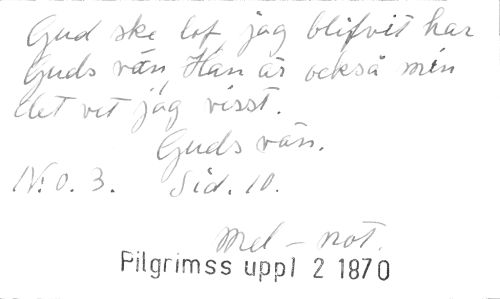 Gud ske lof, jag blifvit har
Guds vän, Han är också min
det vet jag visst.
Guds vän.
N:o. 3. Sid. 10.
Mel-not.
Pilgrimss uppl 2 1870